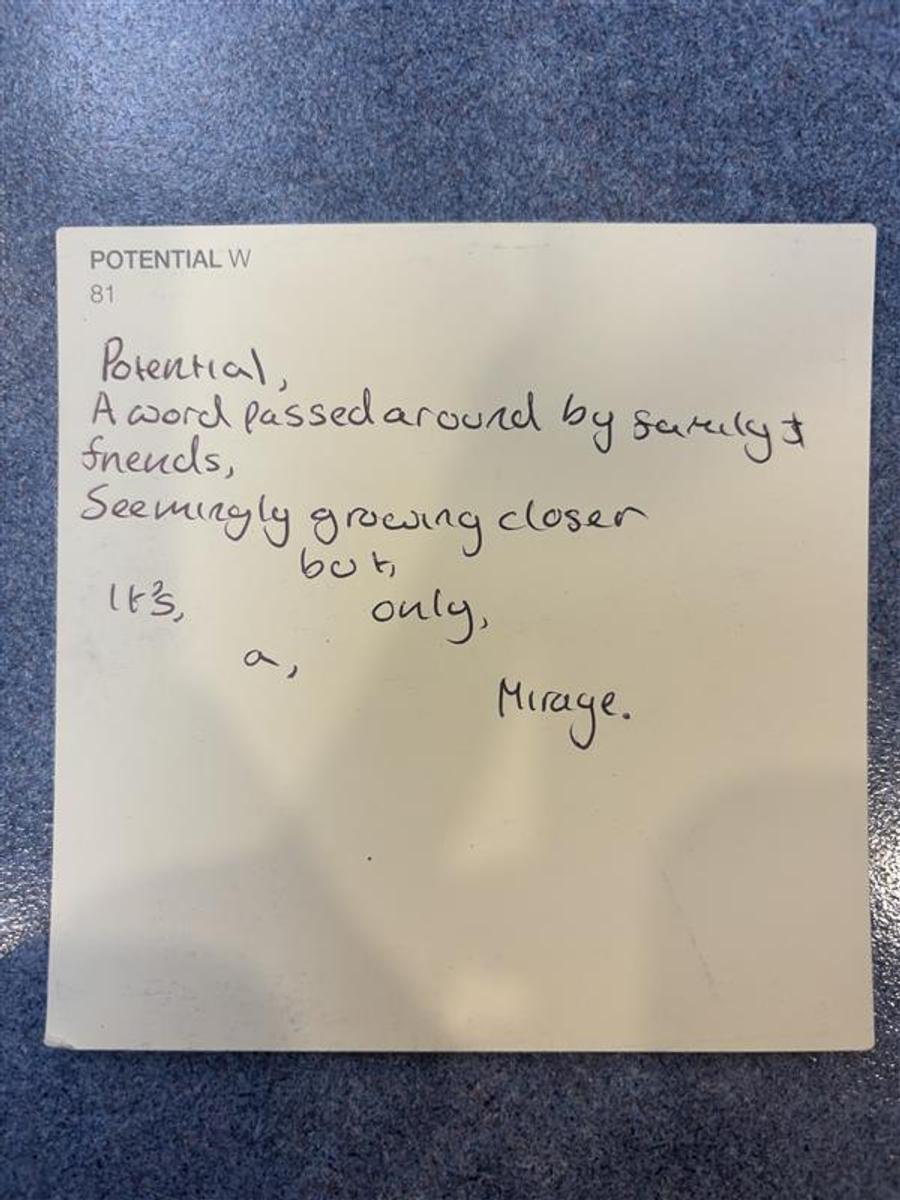 POTENTIAL W
81
Potential,
A word passed around by family &
friends,
Seemingly growing closer
but,
It's, only,
a,
Mirage.